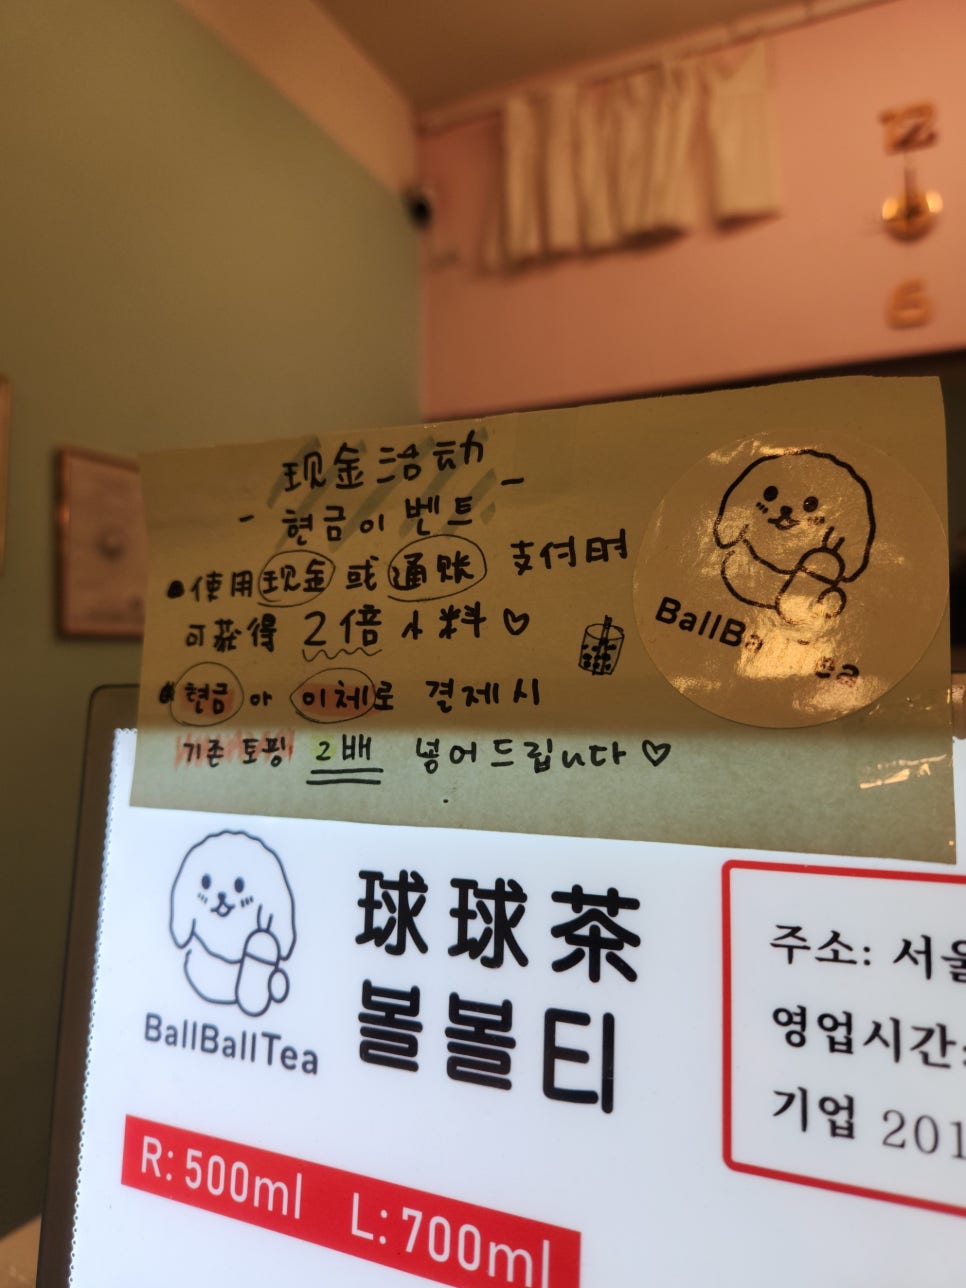 12
6
现金活动
- 현금이벤트 -
● 使用现金 或 通账 支付时
可获得 2倍 小料 ♡
● 현금 아 이체로 결제시
기존 토핑 2배 넣어드립니다 ♡
BallBa ea
球球茶
볼볼티
BallBallTea
주소: 서울
영업시간:
기업 201
R: 500ml L: 700ml